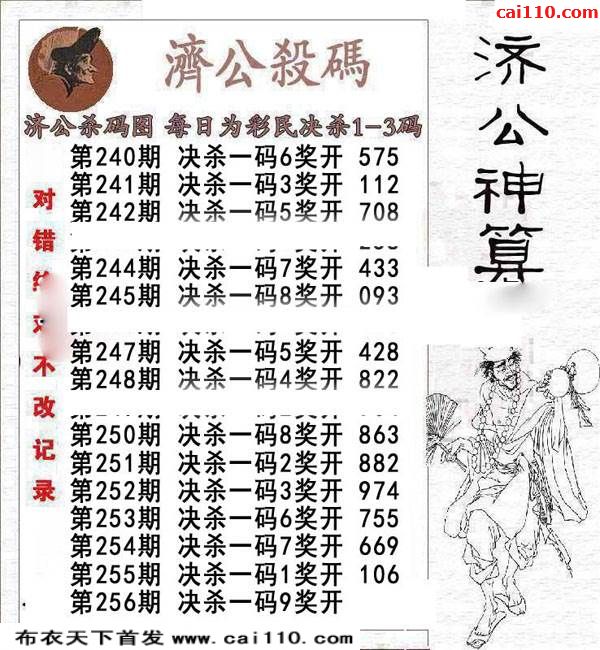 cai110.com
濟公殺碼
济公杀码图 每日为彩民决杀1-3码
第240期 决杀一码6奖开 575
第241期 决杀一码3奖开 112
第242期 决杀一码5奖开 708
第244期 决杀一码7奖开 433
第245期 决杀一码8奖开 093
第247期 决杀一码5奖开 428
第248期 决杀一码4奖开 822
第250期 决杀一码8奖开 863
第251期 决杀一码2奖开 882
第252期 决杀一码3奖开 974
第253期 决杀一码6奖开 755
第254期 决杀一码7奖开 669
第255期 决杀一码1奖开 106
第256期 决杀一码9奖开
对错
不改记录
济公神算
布衣天下首发 www.cai110.com